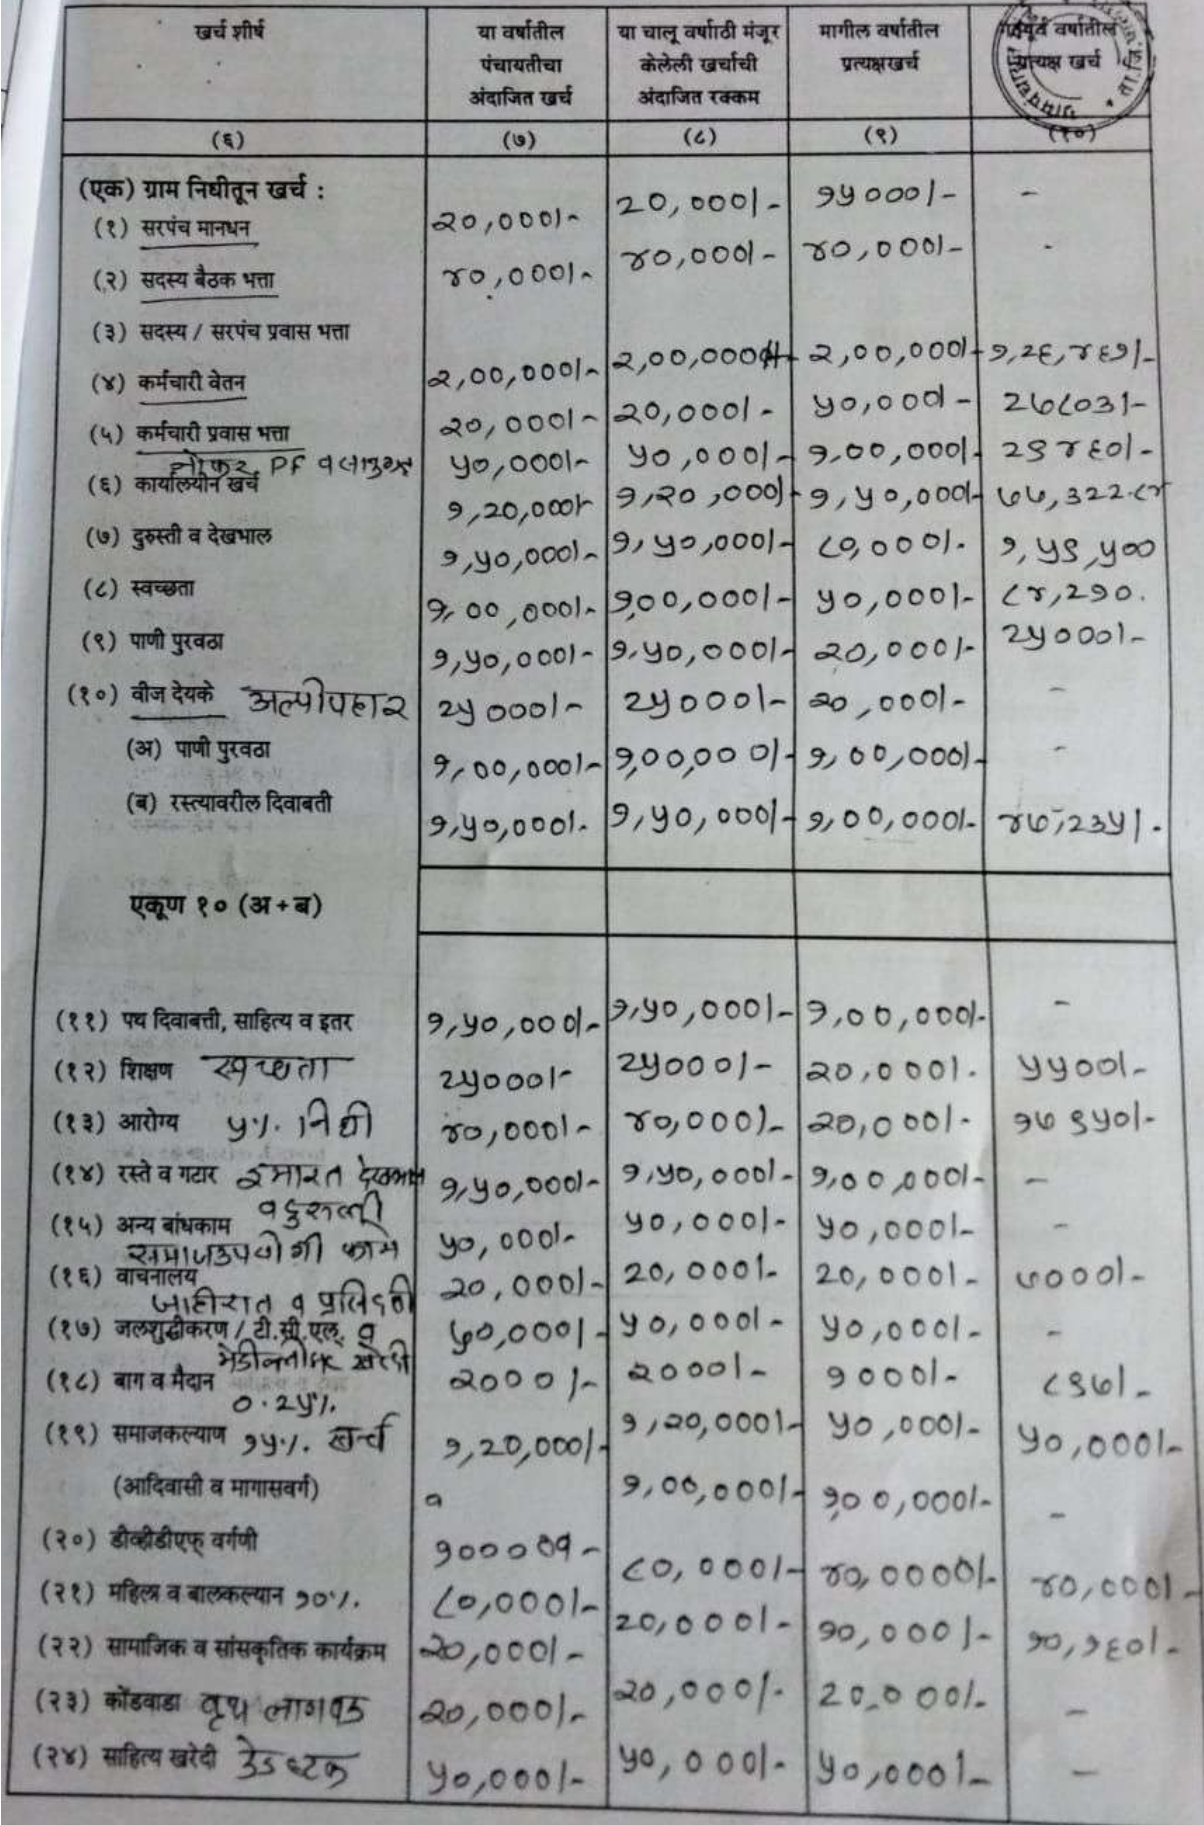 खर्च शीर्ष
या वर्षातील पंचायतीचा अंदाजित खर्च
या चालू वर्षाठी मंजूर केलेली खर्चाची अंदाजित रक्कम
मागील वर्षातील प्रत्यक्षखर्च
वर्षातील प्रत्यक्ष खर्च
(६) (७) (८) (९) (१०)
(एक) ग्राम निधीतून खर्च :
(१) सरपंच मानधन २०,०००/- २०,०००/- १५०००/- -
(२) सदस्य बैठक भत्ता ४०,०००/- ४०,०००/- ४०,०००/- -
(३) सदस्य / सरपंच प्रवास भत्ता
(४) कर्मचारी वेतन २,००,०००/- २,००,०००/- २,००,०००/- १,२६,४६१/-
(५) कर्मचारी प्रवास भत्ता २०,०००/- २०,०००/- ५०,०००/- २७८०३/-
PF व ५०,०००/- ५०,०००/- १,००,०००/- २९४६०/-
(६) कार्यालयीन खर्च १,२०,०००/- १,२०,०००/- १,५०,०००/- ७७,३२२.८४
(७) दुरुस्ती व देखभाल १,५०,०००/- १,५०,०००/- ८०,०००/- १,५९,५००
(८) स्वच्छता १,००,०००/- १,००,०००/- ५०,०००/- ८४,२१०.
(९) पाणी पुरवठा १,५०,०००/- १,५०,०००/- २०,०००/- २५०००/-
(१०) वीज देयके अल्पोपहार २५०००/- २५०००/- २०,०००/- -
(अ) पाणी पुरवठा १,००,०००/- १,००,०००/- १,००,०००/- -
(ब) रस्त्यावरील दिवाबती १,५०,०००/- १,५०,०००/- १,००,०००/- ४७,२३५/-
एकूण १० (अ + ब)
(११) पथ दिवाबत्ती, साहित्य व इतर १,५०,०००/- १,५०,०००/- १,००,०००/- -
(१२) शिक्षण स्वच्छता २५०००/- २५०००/- २०,०००/- ५५००/-
(१३) आरोग्य ५% निधी ४०,०००/- ४०,०००/- २०,०००/- १७९५०/-
(१४) रस्ते व गटार इमारत देखभाल १,५०,०००/- १,५०,०००/- १,००,०००/- -
व दुरुस्ती
(१५) अन्य बांधकाम ५०,०००/- ५०,०००/- ५०,०००/- -
समाजउपयोगी कामे
(१६) वाचनालय २०,०००/- २०,०००/- २०,०००/- ७०००/-
जाहीरात व प्रसिध्दी
(१७) जलशुद्धीकरण / टी.सी.एल. व ५०,०००/- ५०,०००/- ५०,०००/- -
मेडीक्लोर खरेदी
(१८) बाग व मैदान २०००/- २०००/- १०००/- ८९७/-
०.२५%
(१९) समाजकल्याण १५% खर्च १,२०,०००/- १,२०,०००/- ५०,०००/- ५०,०००/-
(आदिवासी व मागासवर्ग) १,००,०००/- १००,०००/- -
(२०) डीव्हीडीएफ् वर्गणी
(२१) महिला व बालकल्यान १०%. ८०,०००/- ८०,०००/- ४०,००००/- ४०,०००/-
(२२) सामाजिक व सांसकृतिक कार्यक्रम २०,०००/- २०,०००/- १०,०००/- १०,१६०/-
(२३) कोंडवाडा वृक्ष लागवड २०,०००/- २०,०००/- २०,०००/- -
(२४) साहित्य खरेदी ५०,०००/- ५०,०००/- ५०,०००/- -